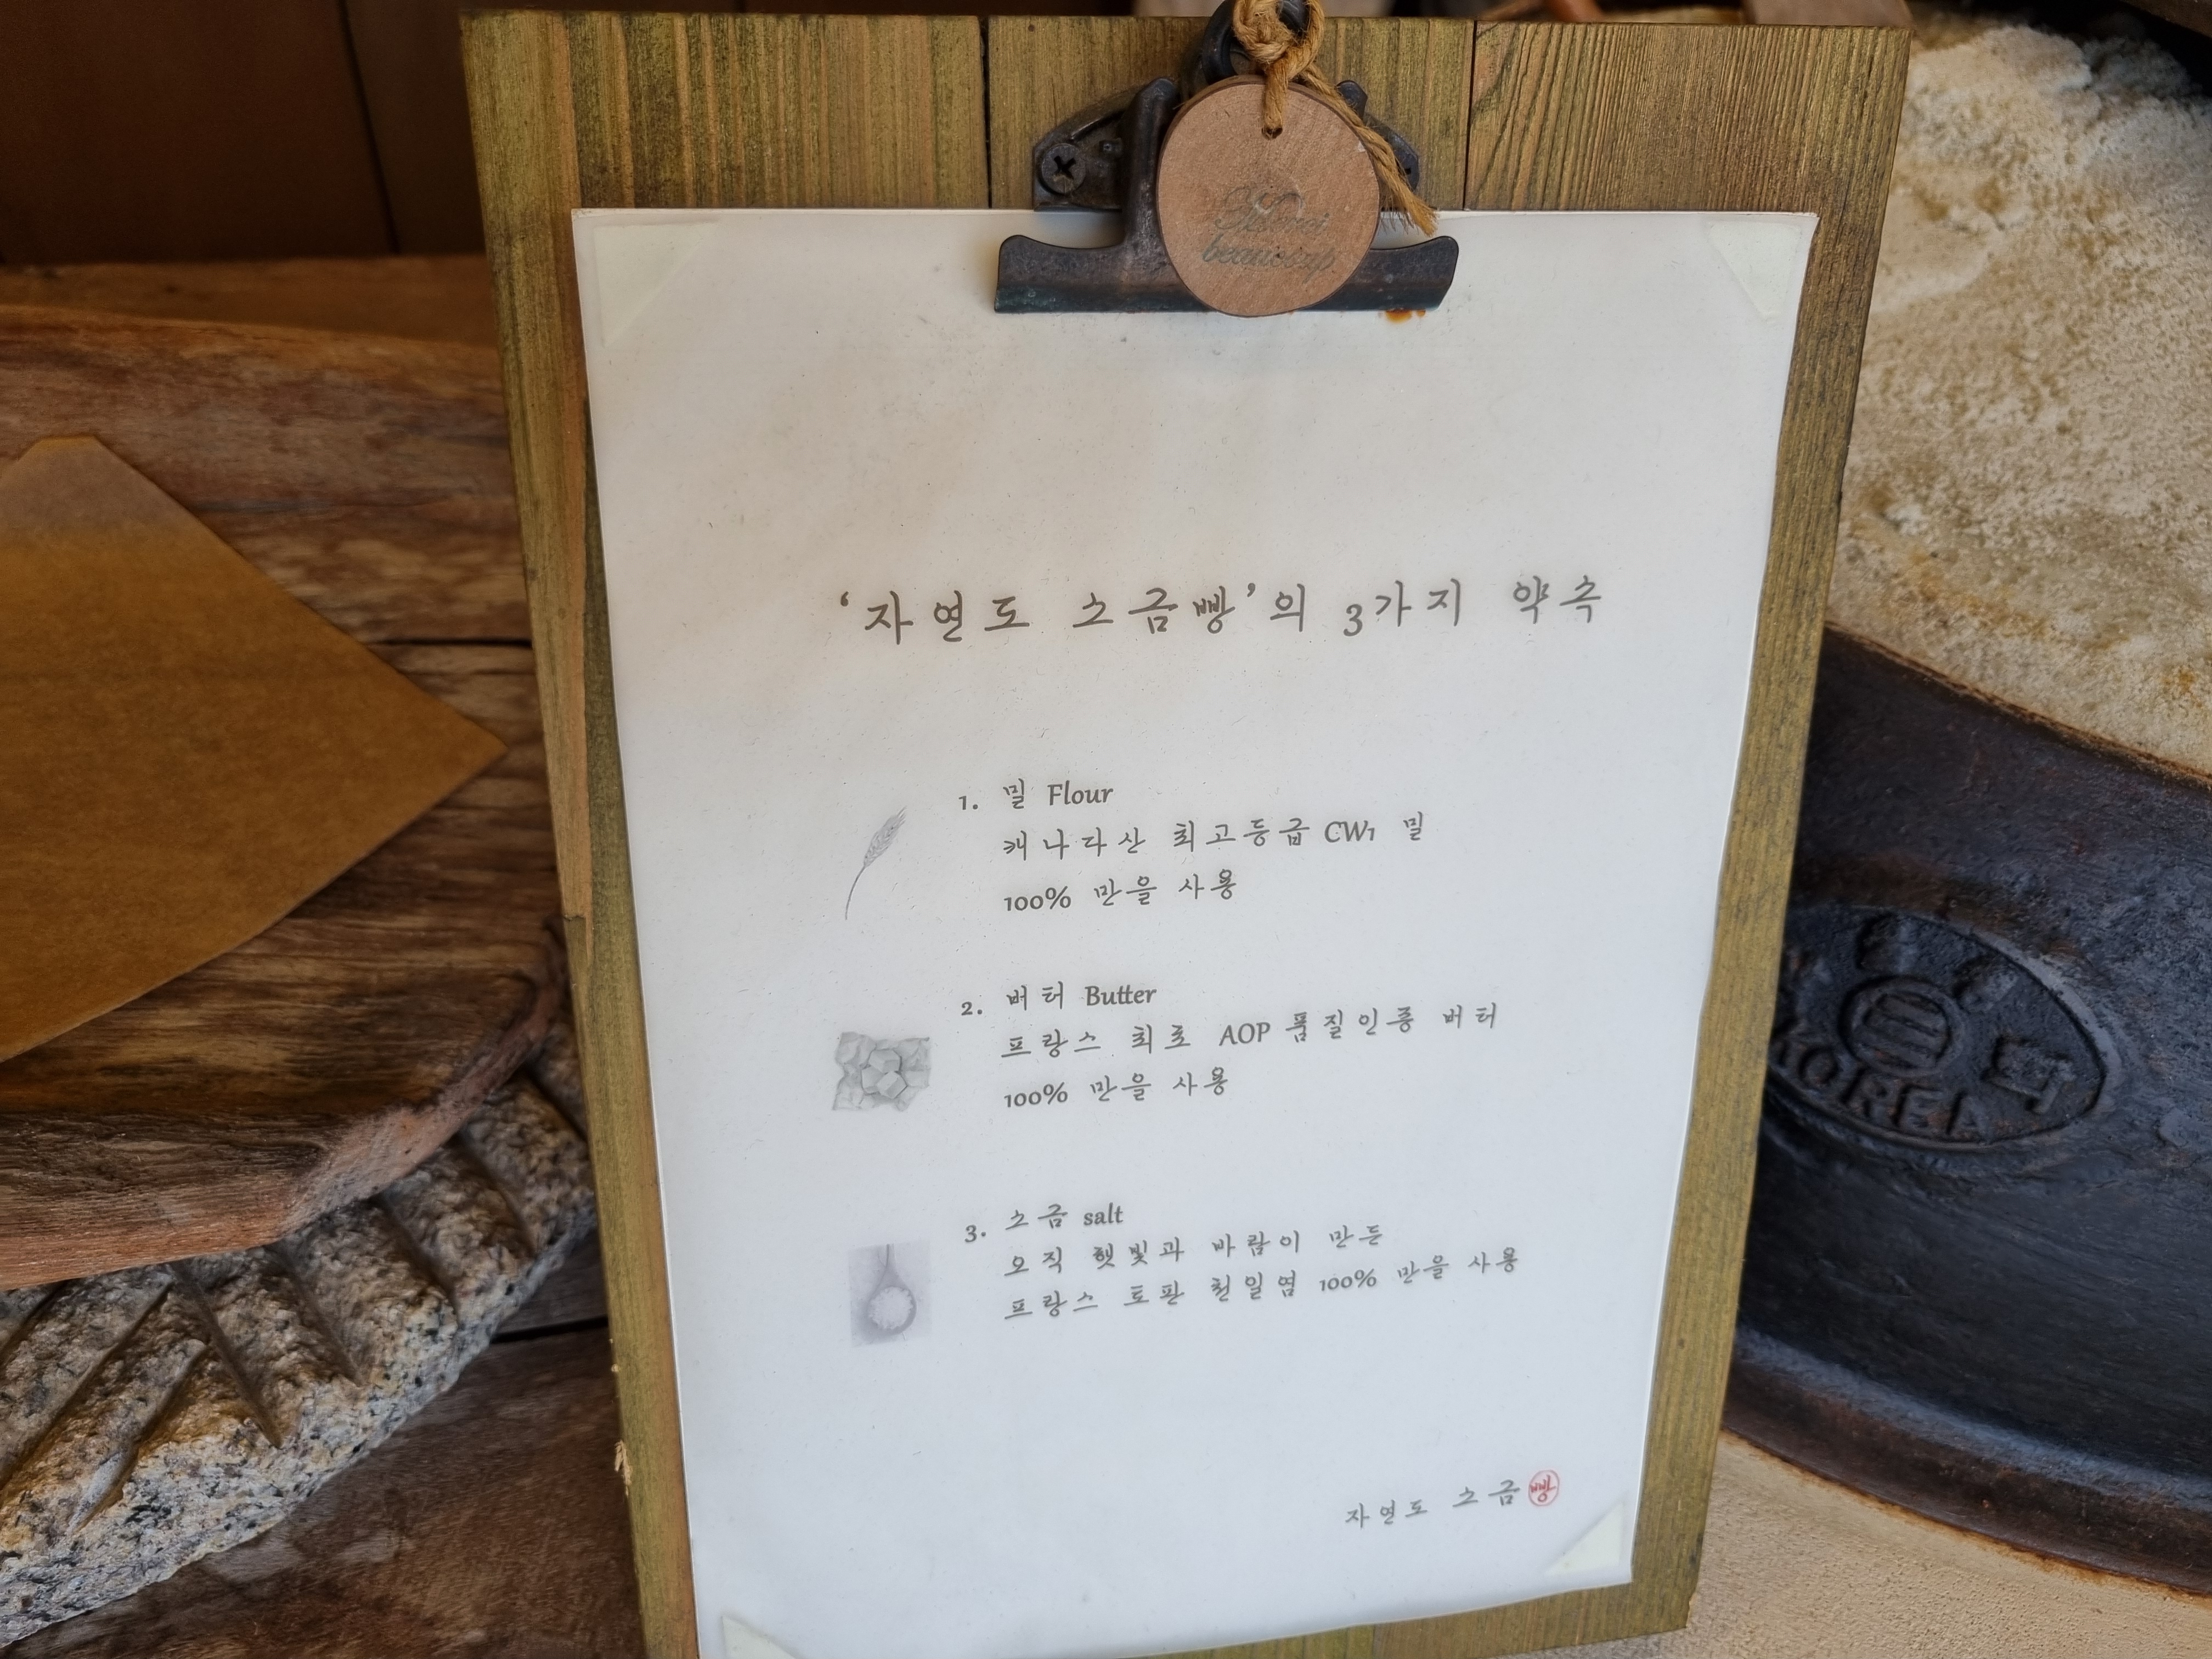 Merci
beaucoup
‘자연도 소금빵’의 3가지 약속
1. 밀 Flour
캐나다산 최고등급 CW1 밀
100% 만을 사용
2. 버터 Butter
프랑스 최초 AOP 품질인증 버터
100% 만을 사용
3. 소금 salt
오직 햇빛과 바람이 만든
프랑스 토판 천일염 100% 만을 사용
자연도 소금빵
KOREA